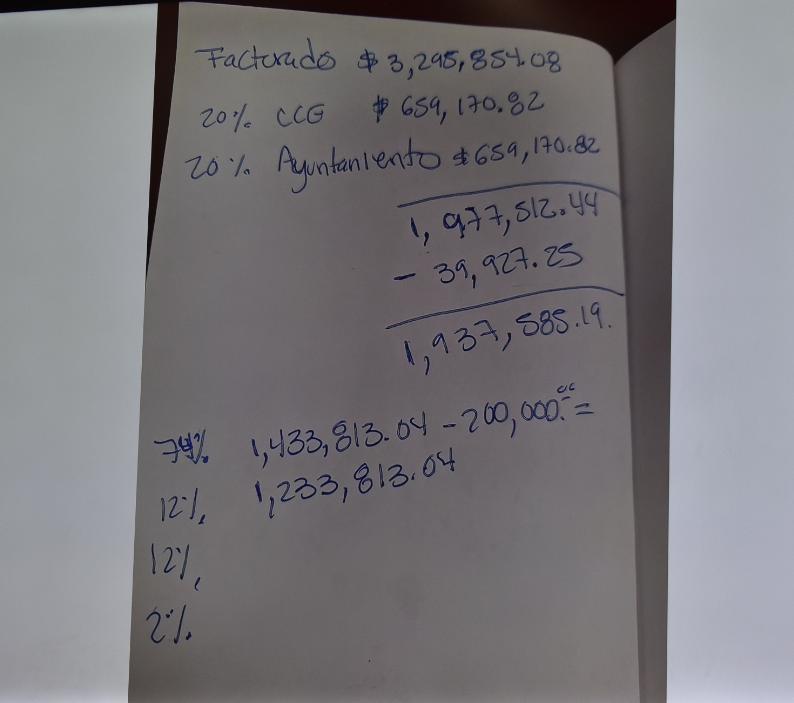 Facturado $ 3,295,854.08
20% CCG $ 659,170.82
20% Ayuntamiento $ 659,170.82
1,977,512.44
- 39,927.25
1,937,585.19.
74% 1,433,813.04 - 200,000.00 =
12% 1,233,813.04
12%
2%